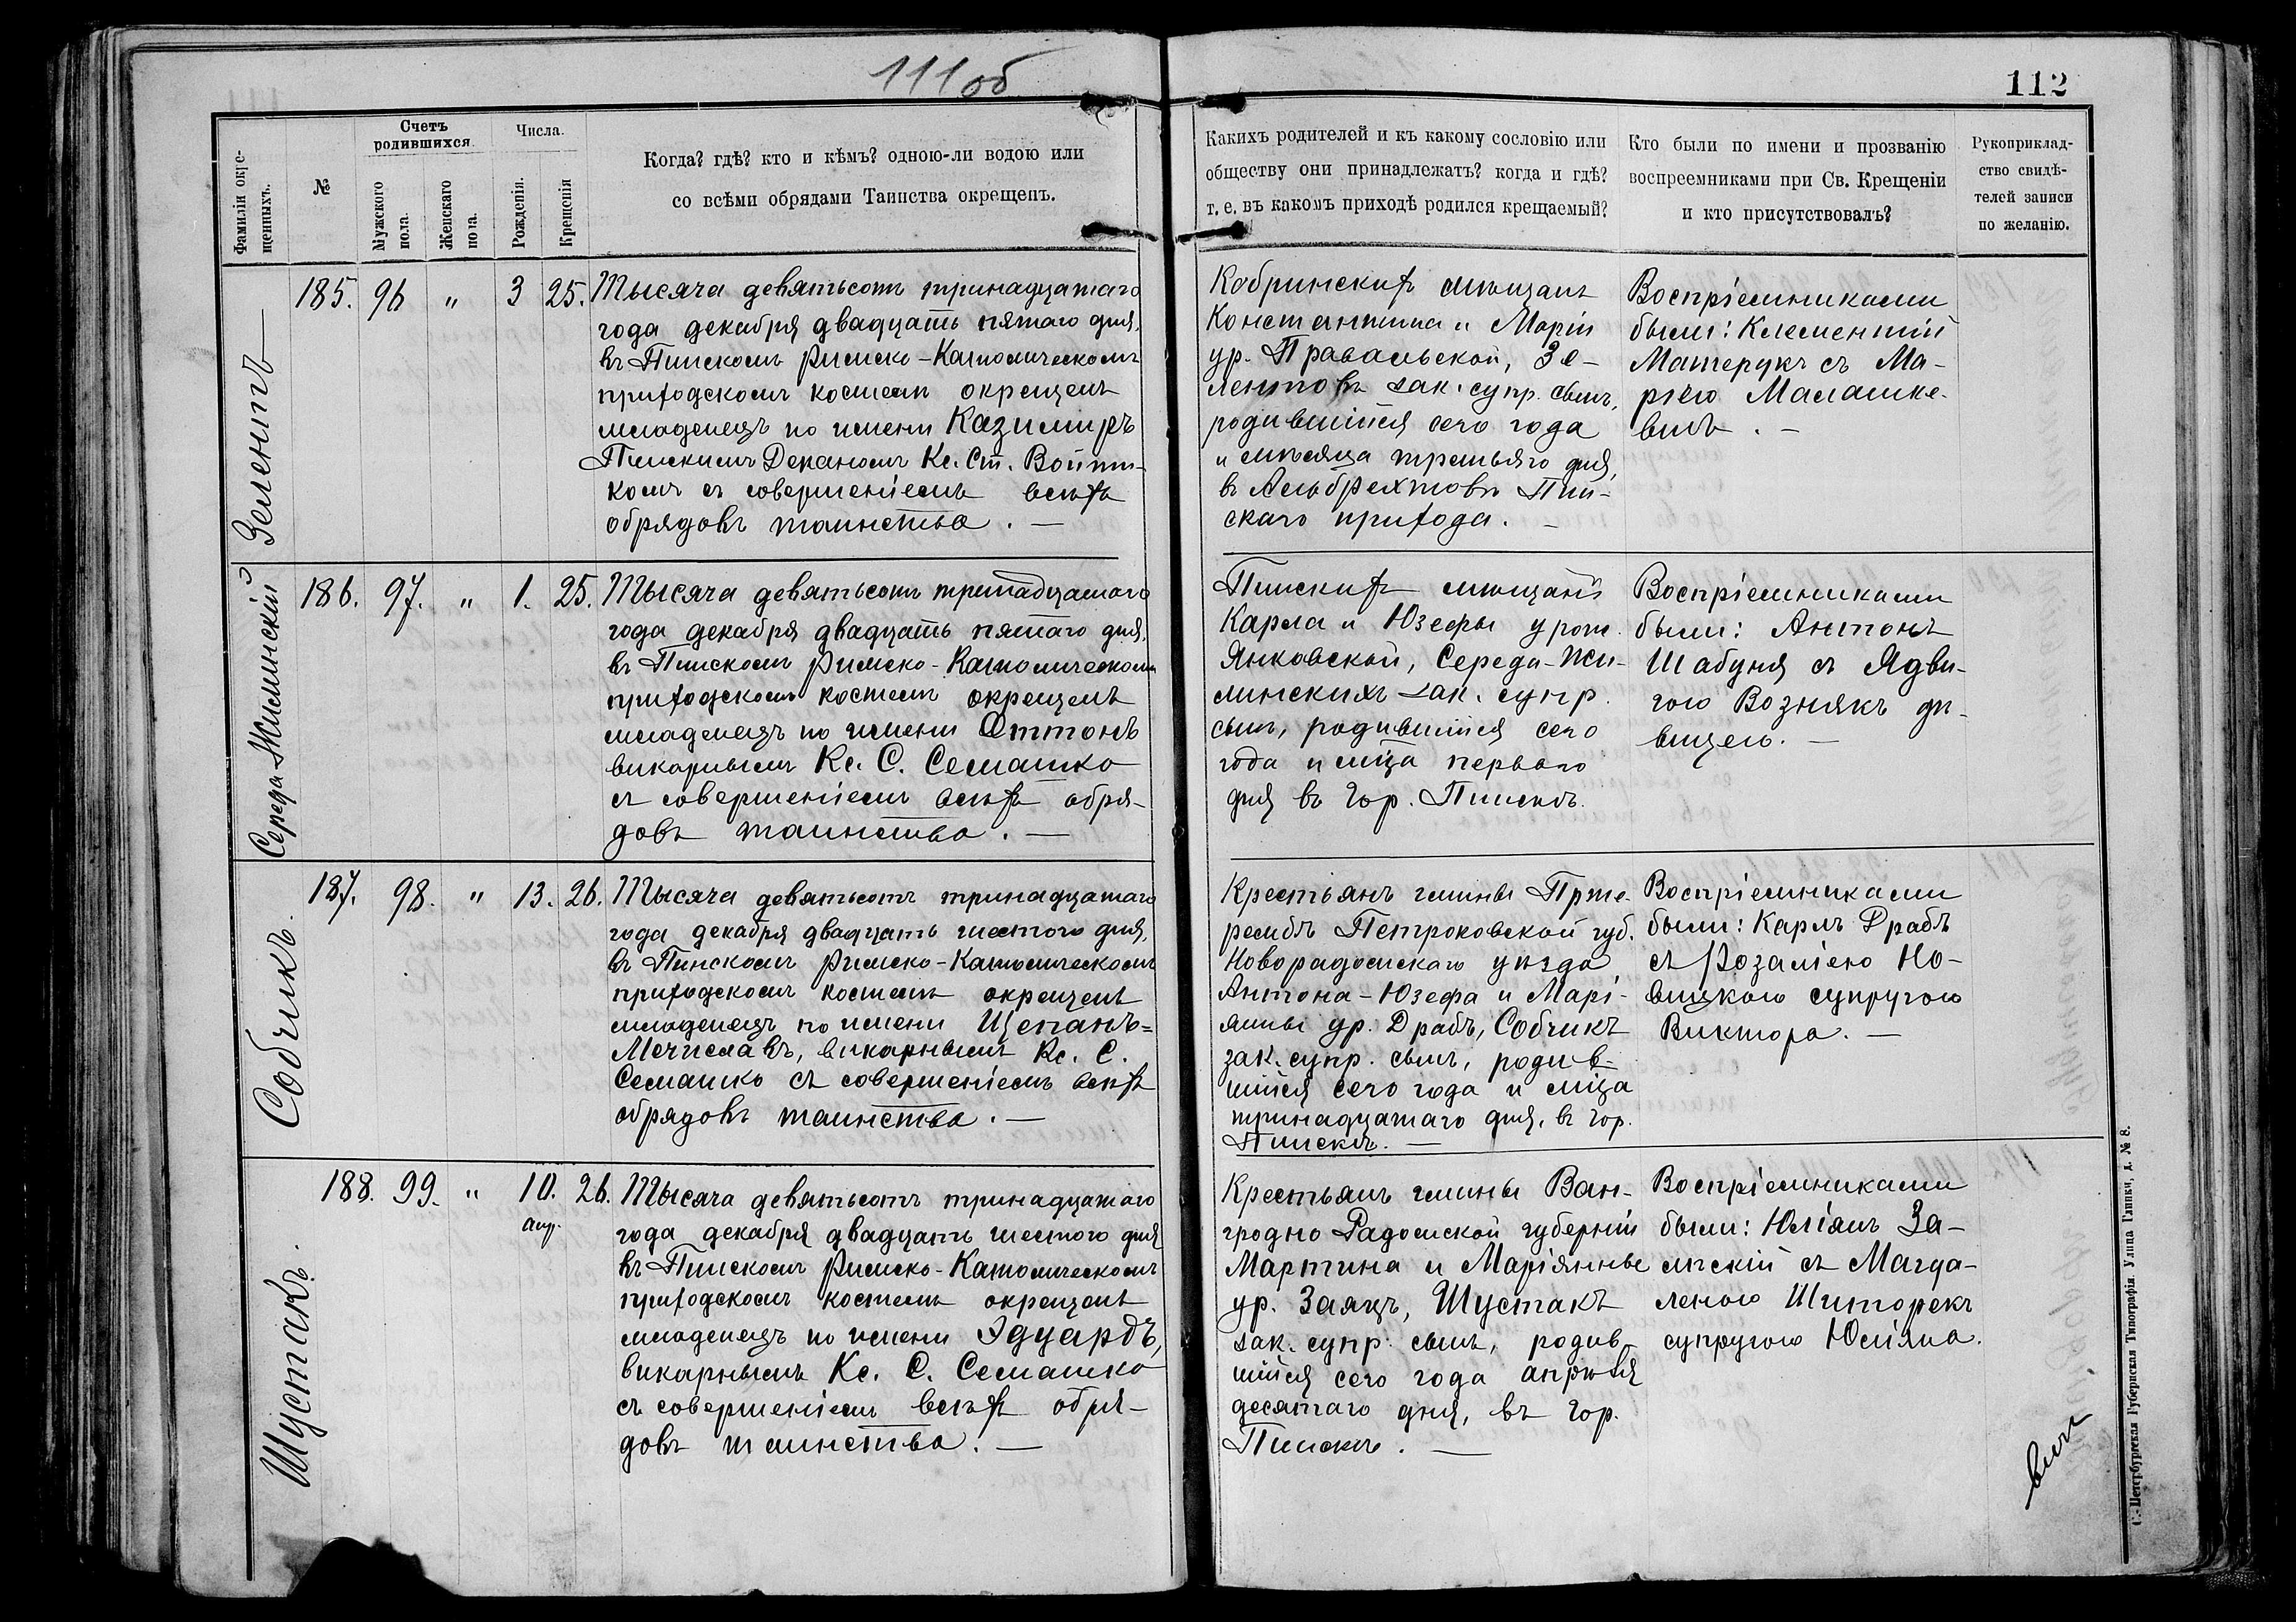 111об
112
Фамиліи окре-
щенныхъ.
№
Счетъ
родившихся.
Мужского
пола.
Женскаго
пола.
Числа.
Рожденія.
Крещенія
Когда? гдѣ? кто и кѣмъ? одною-ли водою или
со всѣми обрядами Таинства окрещенъ.
Какихъ родителей и къ какому сословію или
обществу они принадлежатъ? когда и гдѣ?
т. е. въ какомъ приходѣ родился крещаемый?
Кто были по имени и прозванію
воспреемниками при Св. Крещеніи
и кто присутствовалъ?
Рукоприклад-
ство свидѣ-
телей записи
по желанію.
Зелентъ
185. 96 " 3 25.
Тысяча девятьсотъ тринадцатаго
года декабря двадцать пятаго дня,
въ Пинскомъ Римско-Католическомъ
приходскомъ костелѣ окрещенъ
младенецъ по имени Казимиръ
Пинскимъ Деканомъ Кс. Ст. Войтѣ-
комъ съ совершеніемъ всѣхъ
обрядовъ таинства. —
Кобринскихъ мѣщанъ
Константина и Маріи
ур. Правальской, Зе-
лентовъ зак. супр. сынъ,
родившійся сего года
и мѣсяца третьяго дня,
въ Альбрехтовѣ Пин-
скаго прихода. —
Воспріемниками
были: Клементій
Матерукъ съ Ма-
ріею Малашке-
вичъ. —
Середа-Жилинскій
186. 97. " 1. 25.
Тысяча девятьсотъ тринадцатаго
года декабря двадцать пятаго дня,
въ Пинскомъ Римско-Католическомъ
приходскомъ костелѣ окрещенъ
младенецъ по имени Оттонъ
викарнымъ Кс. С. Семашко
съ совершеніемъ всѣхъ обря-
довъ таинства. —
Пинскихъ мѣщанъ
Карла и Юзефы урож.
Янковской, Середа-Жи-
линскихъ зак. супр.
сынъ, родившійся сего
года и мѣца перваго
дня въ гор. Пинскѣ.
Воспріемниками
были: Антонъ
Шабуня съ Ядви-
гою Вознякъ дѣ-
вицею. —
Собчикъ.
187. 98. " 13. 26.
Тысяча девятьсотъ тринадцатаго
года декабря двадцать шестого дня,
въ Пинскомъ Римско-Католическомъ
приходскомъ костелѣ окрещенъ
младенецъ по имени Щепанъ=
Мечиславъ, викарнымъ Кс. С.
Семашко съ совершеніемъ всѣхъ
обрядовъ таинства. —
Крестьянъ гмины
Петроковской губ.
Новорадомскаго уѣзда,
Антона-Юзефа и Марі-
янны ур. Драбъ, Собчикъ
зак. супр. сынъ, родив-
шійся сего года и мѣца
тринадцатаго дня, въ гор.
Пинскѣ. —
Воспріемниками
были: Карлъ Драбъ
съ Розаліею Но-
вицкою супругою
Виктора. —
Шустакъ.
188. 99. " 10. 26.
апр.
Тысяча девятьсотъ тринадцатаго
года декабря двадцать шестого дня
въ Пинскомъ Римско-Католическомъ
приходскомъ костелѣ окрещенъ
младенецъ по имени Эдуардъ,
викарнымъ Кс. С. Семашко
съ совершеніемъ всѣхъ обря-
довъ таинства. —
Крестьянъ гмины Ван-
гродно Радомской губерніи
Мартина и Маріянны
ур. Заяцъ, Шустакъ
зак. супр. сынъ, родив-
шійся сего года апрѣля
десятаго дня, въ гор.
Пинскѣ. —
Воспріемниками
были: Юліянъ За-
лѣскій съ Магда-
леною Шиторекъ
супругою Юліяна.
С.-Петербургская Губернская Типографія. Улица Глинки, д. № 8.